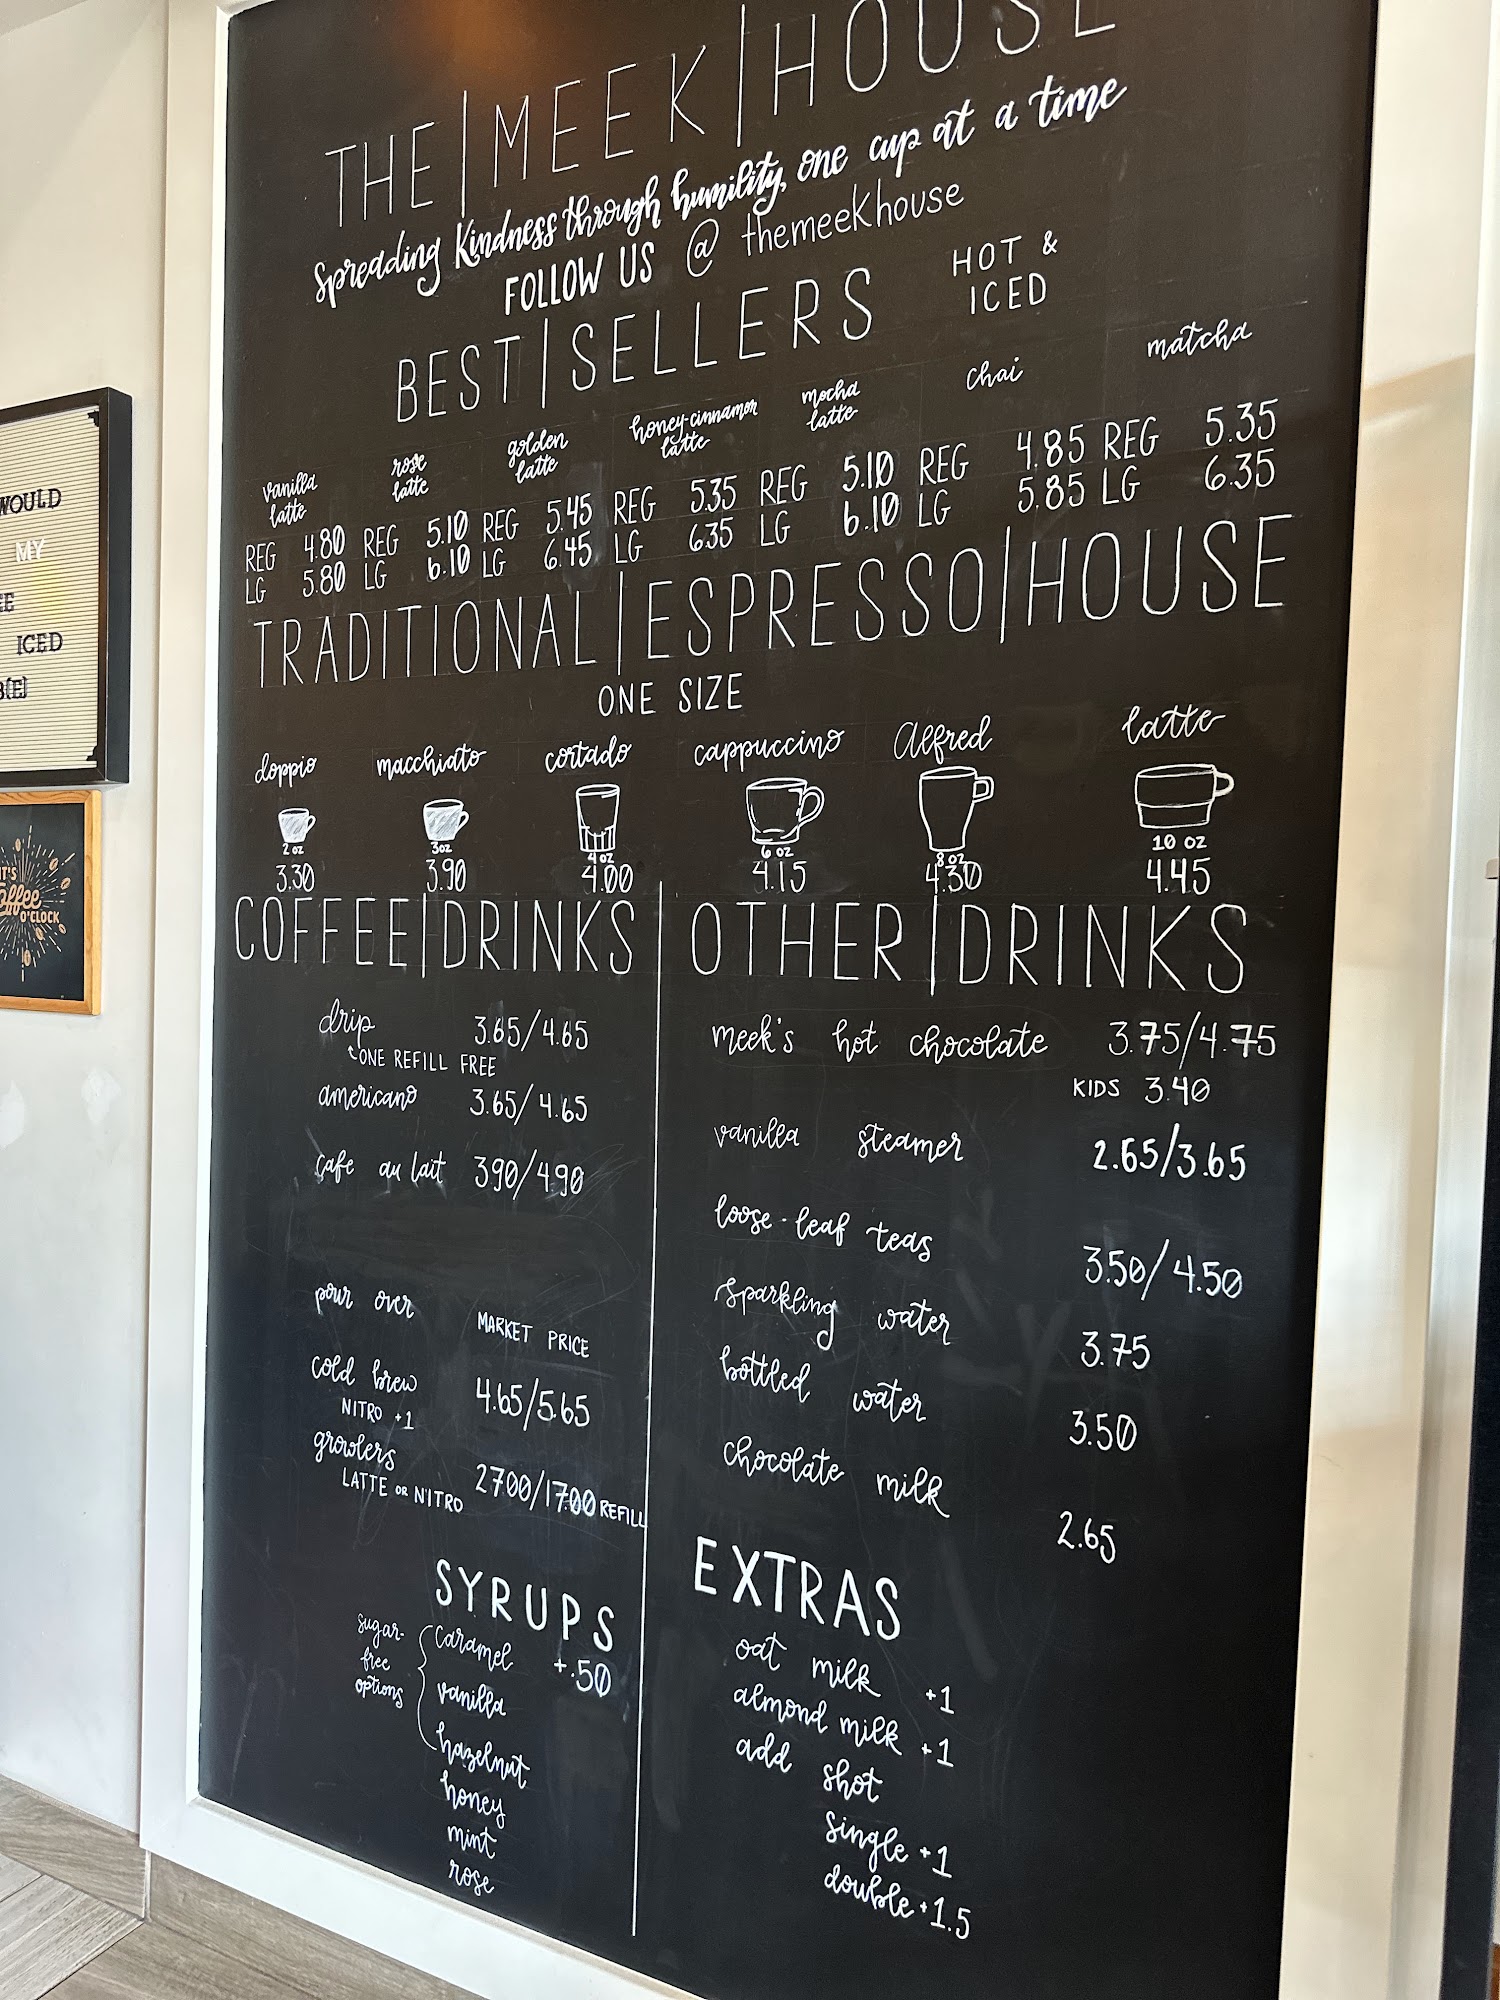 THE | MEEK | HOUSE
Spreading Kindness through humility, one cup at a time
FOLLOW US @ themeekhouse
BEST | SELLERS
HOT &
ICED
vanilla
latte
REG 4.80
LG 5.80
rose
latte
REG 5.10
LG 6.10
golden
latte
REG 5.45
LG 6.45
honey-cinnamon
latte
REG 5.35
LG 635
mocha
latte
REG 5.10
LG 6.10
chai
REG 4.85
LG 5.85
matcha
REG 5.35
LG 6.35
TRADITIONAL | ESPRESSO | HOUSE
ONE SIZE
doppio
2 oz
3.30
macchiato
3oz
3.90
cortado
4 oz
4.00
cappuccino
6 oz
4.15
Alfred
8 oz
4.30
latte
10 oz
4.45
COFFEE | DRINKS
drip 3.65/4.65
ONE REFILL FREE
americano 3.65/4.65
cafe au lait 390/4.90
pour over MARKET PRICE
cold brew 4.65/5.65
NITRO +1
growlers 2700/1700 REFILL
LATTE OR NITRO
SYRUPS
+.50
sugar-
free
options
caramel
vanilla
hazelnut
honey
mint
rose
OTHER | DRINKS
meek's hot chocolate 3.75/4.75
KIDS 3.40
vanilla steamer 2.65/3.65
loose-leaf teas 3.50/4.50
sparkling water 3.75
bottled water 3.50
chocolate milk 2.65
EXTRAS
oat milk +1
almond milk +1
add shot
single +1
double +1.5
WOULD
MY
ICED
IT'S
Coffee
O'CLOCK